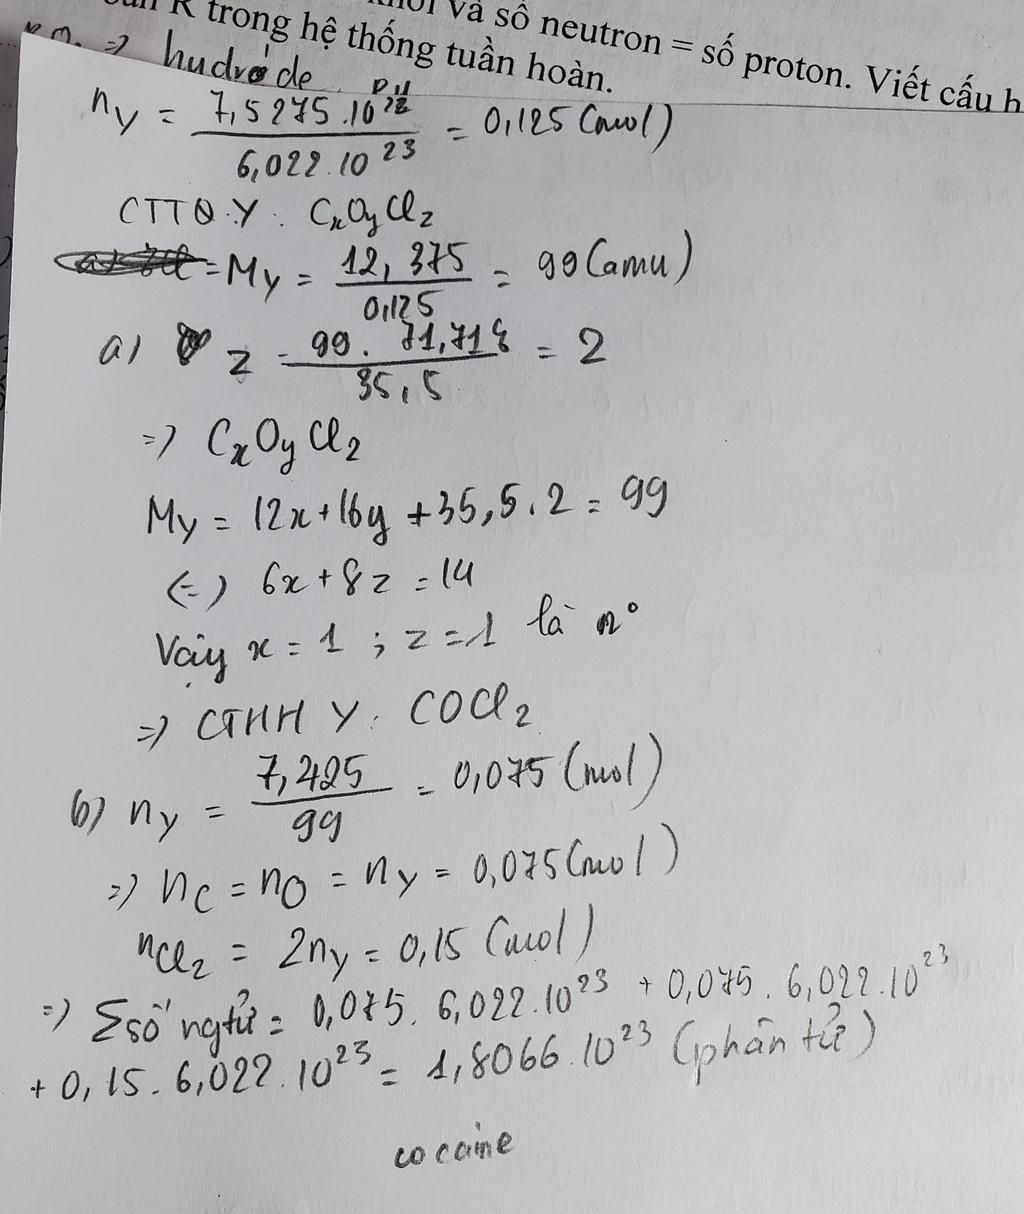 R trong hệ thống tuần hoàn.
và số neutron = số proton. Viết cấu h
=> hudrode
n_Y = 7,5275.10^22 / 6,022.10^23 = 0,125 (mol)
CTTQ Y: CxOyCl2
= M_Y = 12,375 / 0,125 = 99 (amu)
a) z = 99. 71,71% / 35,5 = 2
=> CxOyCl2
M_Y = 12x+16y+35,5.2 = 99
(=) 6x+8z=14
Vậy x=1; z=1 là n°
=> CTHH Y: COCl2
b) n_Y = 7,425 / 99 = 0,075 (mol)
=> n_C = n_O = n_Y = 0,075 (mol)
n_Cl2 = 2n_Y = 0,15 (mol)
=> Σsố ngtử = 0,075. 6,022.10^23 + 0,075. 6,022.10^23
+ 0,15. 6,022.10^23 = 1,8066.10^23 (phân tử)
cocaine